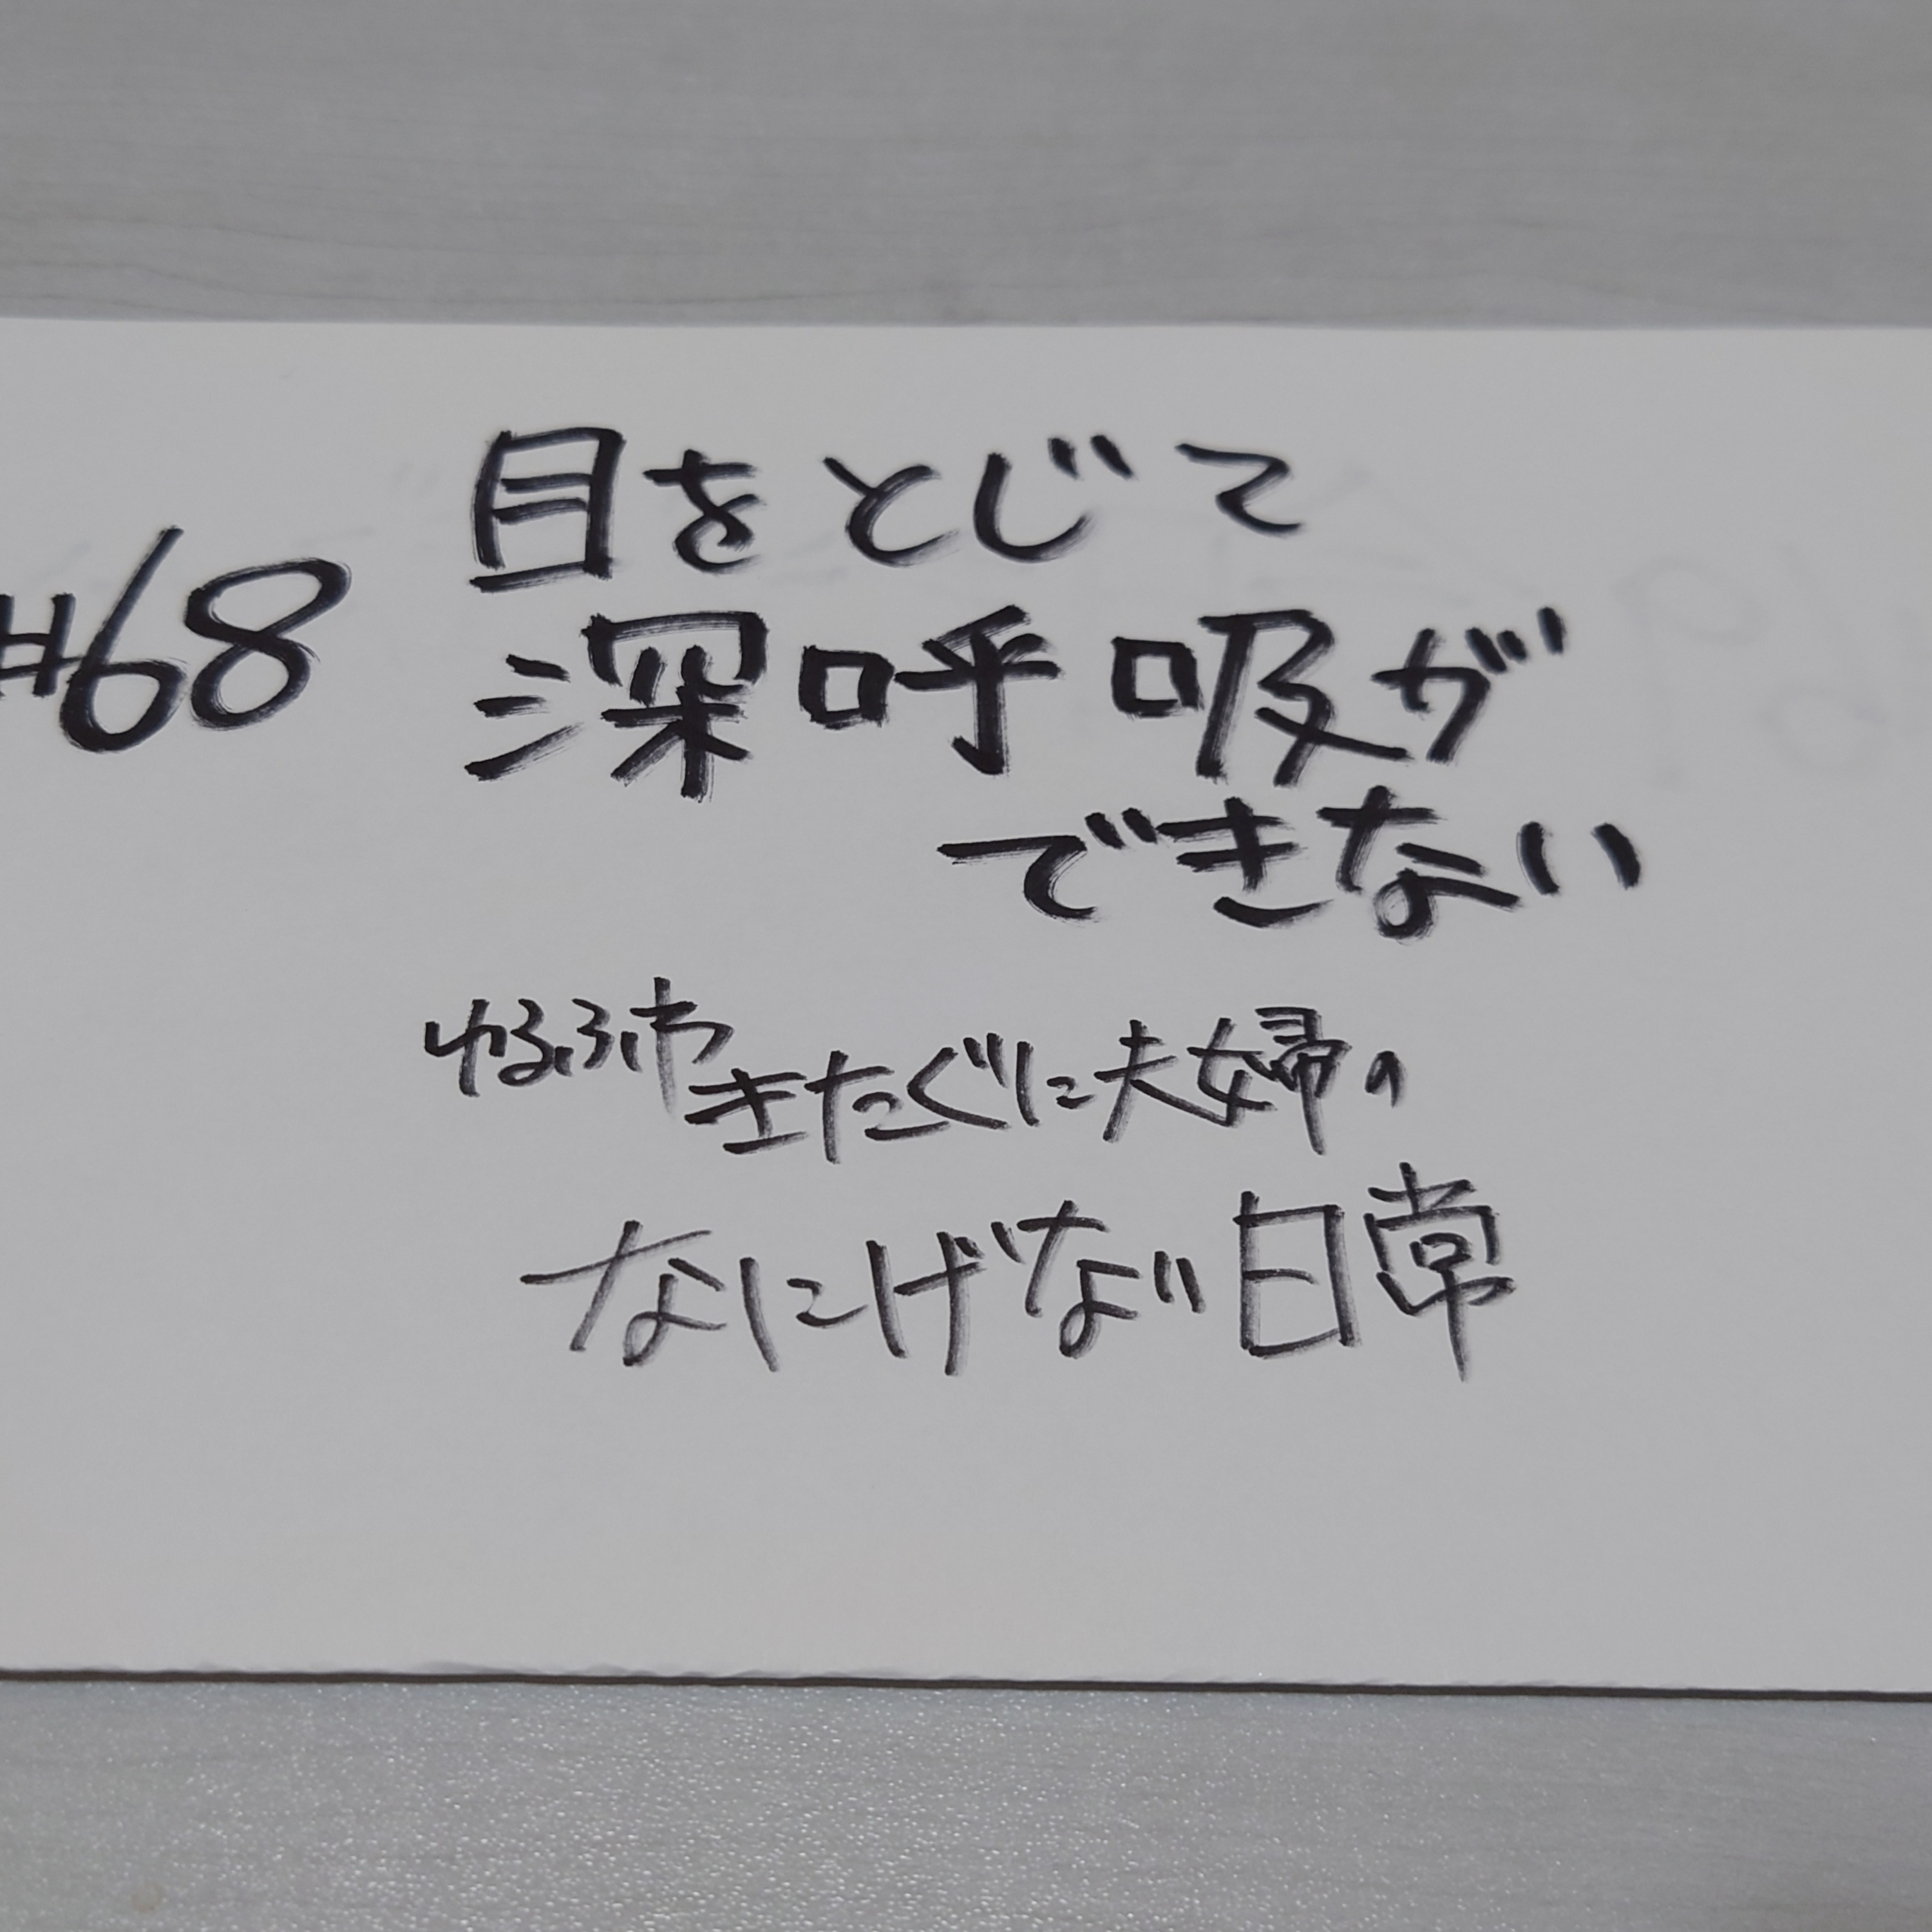 #68
目をとじて
深呼吸が
できない
ゆるふわ
きたぐに夫婦の
なにげない日常